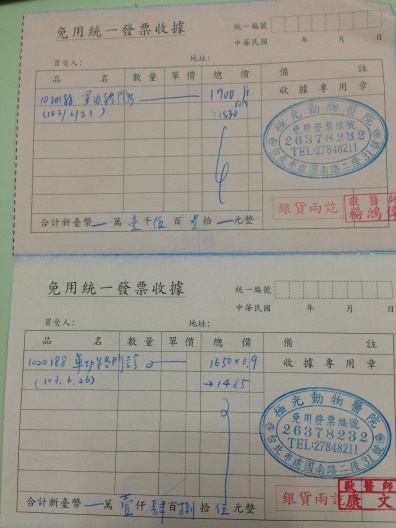 免用統一發票收據
統一編號
中華民國 年 月 日
買受人： 地址：
品名 數量 單價 總價 備註
1020188 1700
:1530
收據專用章
極光動物醫院
免用發票編號
26378232
TEL:27848211
台北市建國南路二段31號
銀貨兩訖
獸醫師
楊鴻
合計新臺幣 萬壹千伍百叁拾 元整
免用統一發票收據
統一編號
中華民國 年 月 日
買受人： 地址：
品名 數量 單價 總價 備註
1020188 1650×0.9
(103.6.26) →1485
收據專用章
極光動物醫院
免用發票編號
26378232
TEL:27848211
台北市建國南路二段31號
銀貨兩訖
獸醫師
康文
合計新臺幣 萬壹仟肆百捌拾伍元整